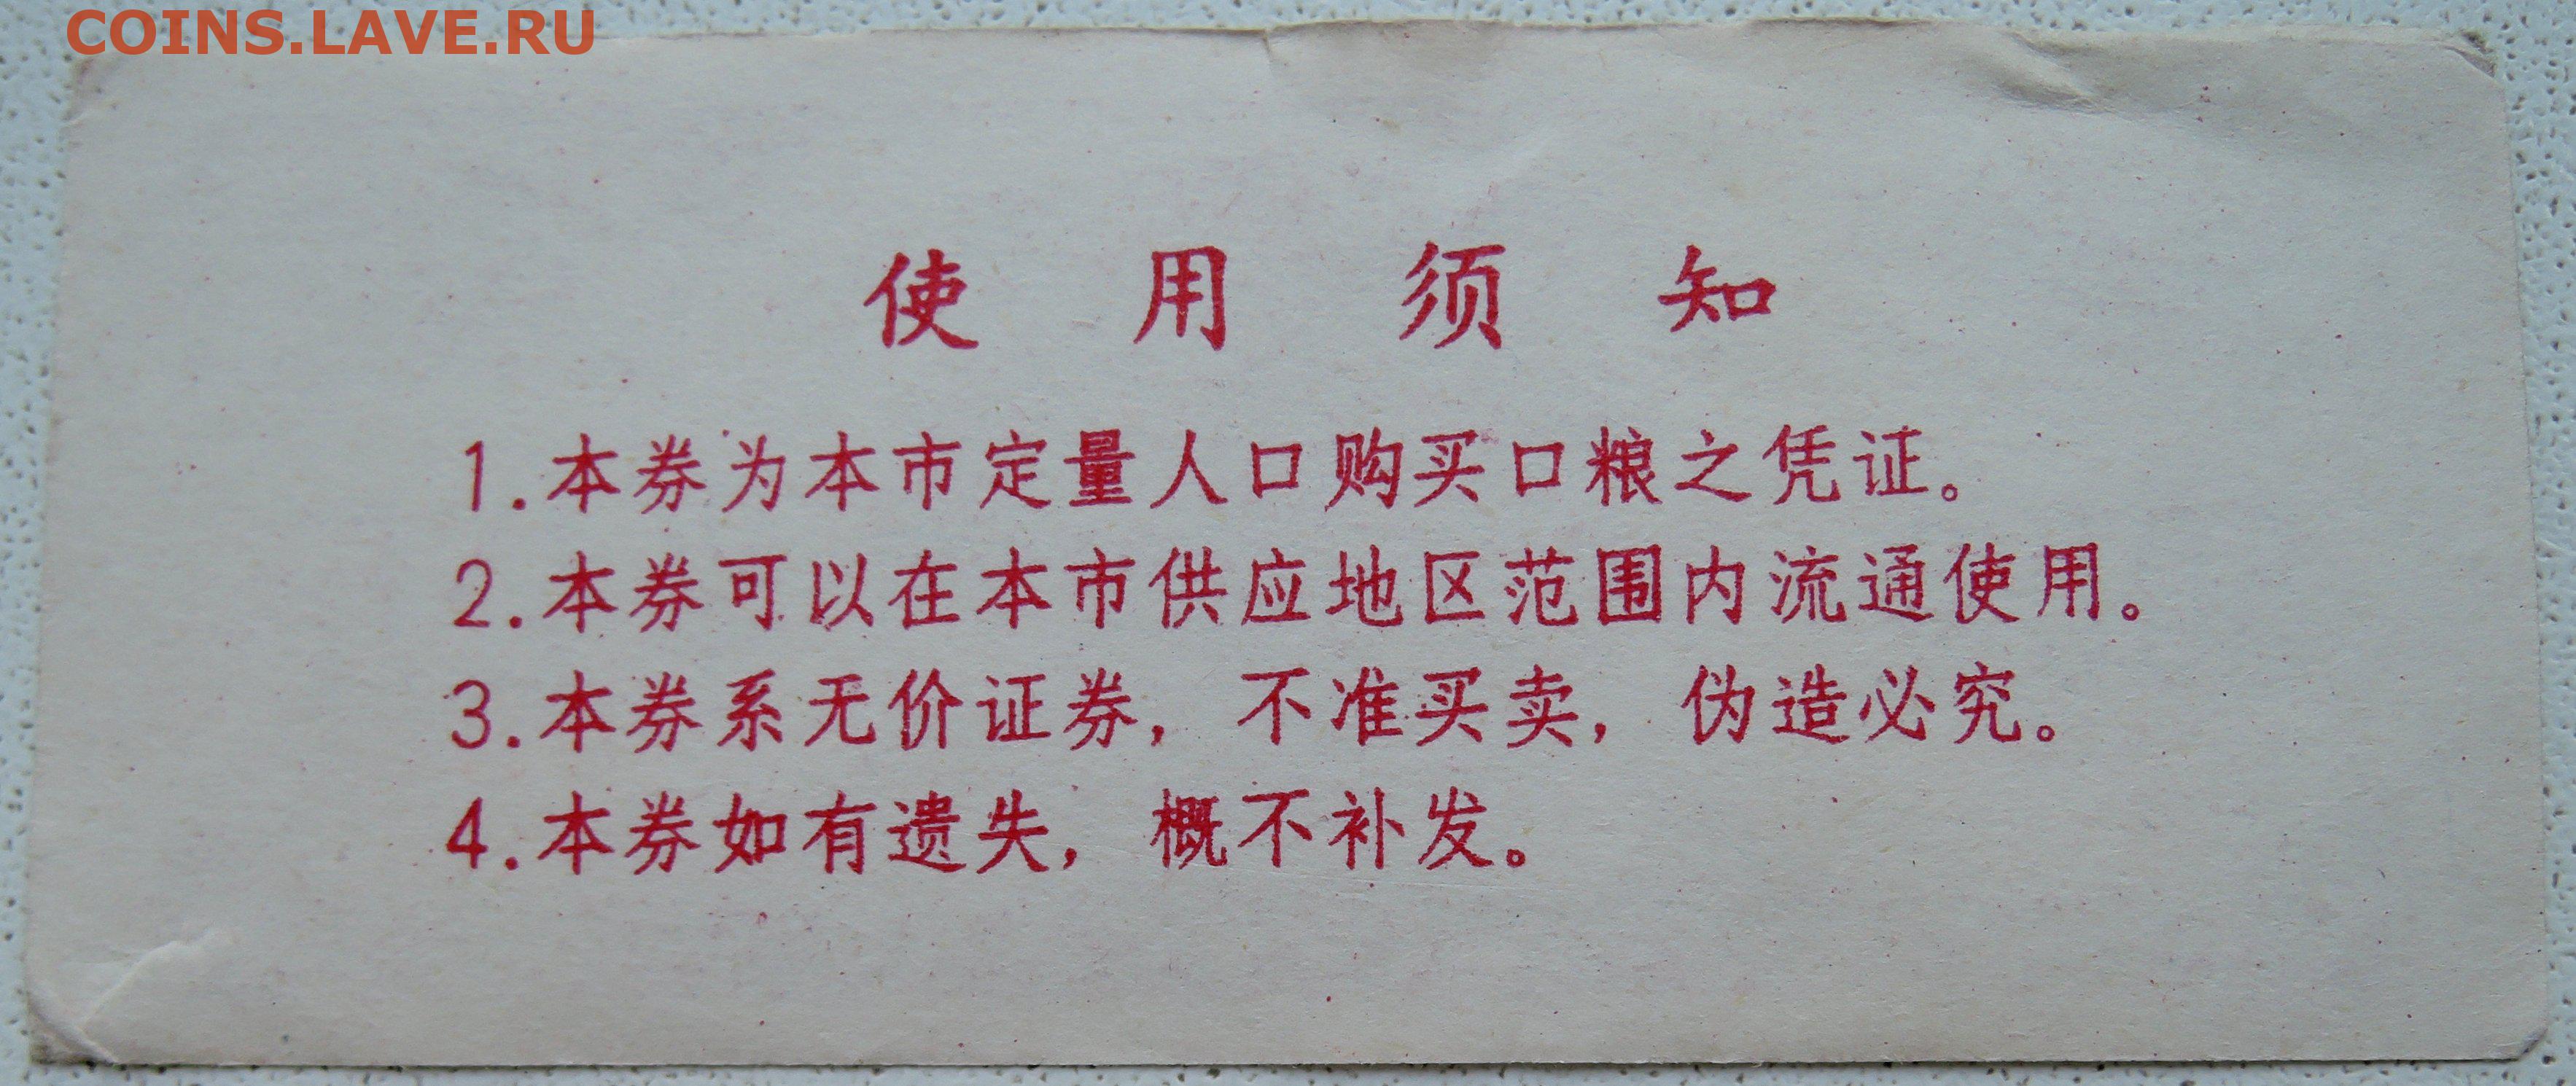 COINS.LAVE.RU
使用须知
1.本券为本市定量人口购买口粮之凭证。
2.本券可以在本市供应地区范围内流通使用。
3.本券系无价证券，不准买卖，伪造必究。
4.本券如有遗失，概不补发。